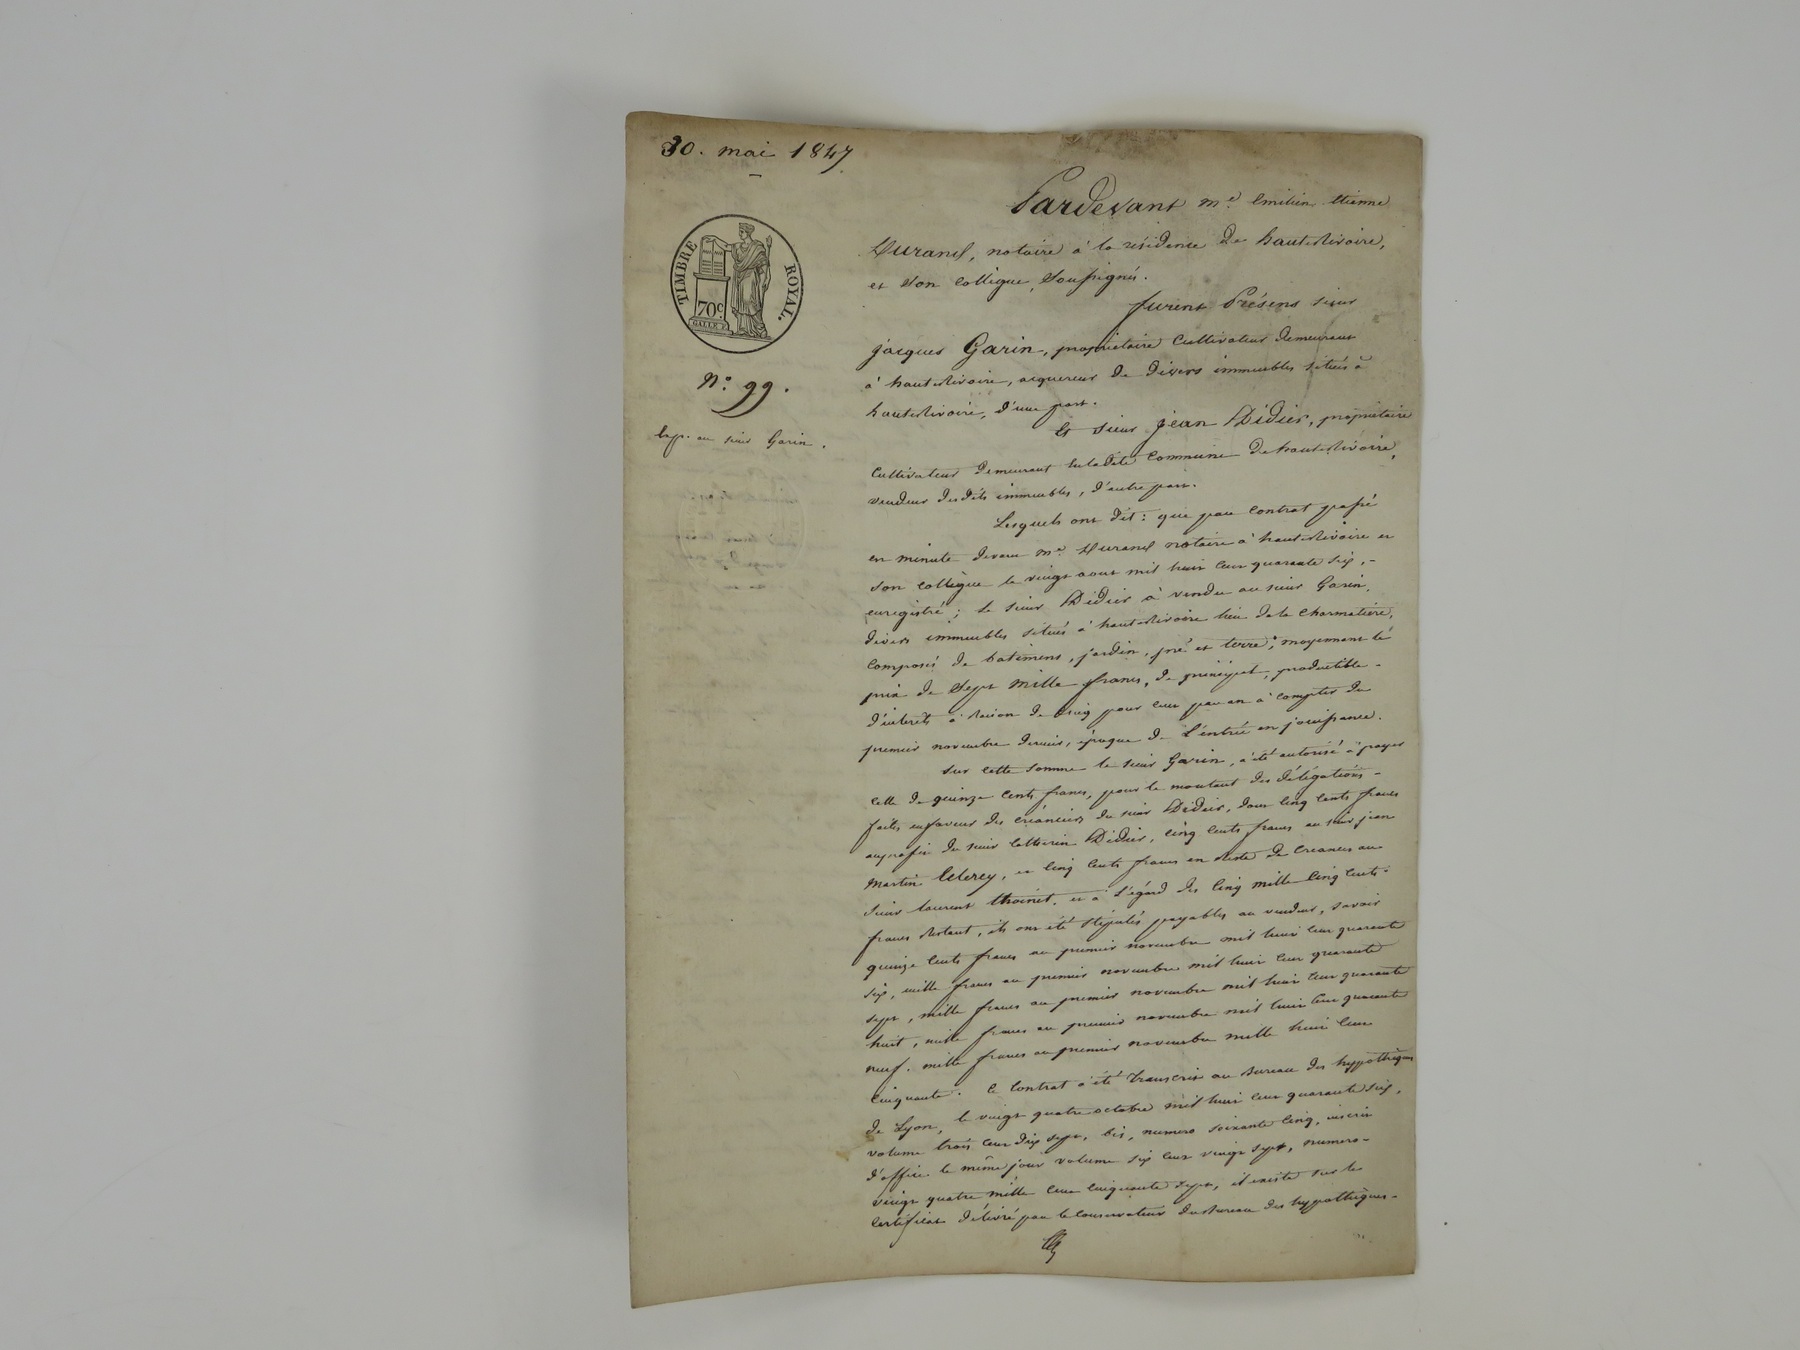 30. mai 1847
TIMBRE ROYAL.
70c.
GALLE
N.o 99.
Exp. au sieur Garin.
Pardevant M.e Emilien Etienne
Durand, notaire à la résidence de haute-Rivoire,
et son collègue, soussignés.
furent Présens sieur
jacques Garin, propriétaire cultivateur demeurant
à haute-Rivoire, acquereur de divers immeubles situés à
haute-Rivoire, d'une part.
Et sieur jean Didier, propriétaire
cultivateur demeurant en ladite commune de haute-Rivoire,
vendeur desdits immeubles, d'autre part.
Lesquels ont dit: que par contrat passé
en minute devant M.e Durand notaire à haute-Rivoire et
son collègue le vingt aout mil huit cent quarante six,
enregistré; le sieur Didier à vendu au sieur Garin,
divers immeubles situés à haute-Rivoire lieu de la Charmatière,
composés de batimens, jardin, pré et terre; moyennant le
prix de sept mille francs, de principal, productible
d'intérêts à raison de cinq pour cent par an à compter du
premier novembre dernier, époque de l'entrée en jouissance.
sur cette somme le sieur Garin, à été autorisé à payer
celle de quinze cents francs, pour le montant des délégations
faites en faveur des créanciers du sieur Didier, dont cinq cents francs
au profit du sieur Didier, cinq cents francs au sieur jean
Martin, et cinq cents francs en reste de créances au
sieur laurent thoinet. et à l'égard des cinq mille cinq cents
francs restant, ils ont été stipulés payables au vendeur, savoir
quinze cents francs au premier novembre mil huit cent quarante
six, mille francs au premier novembre mil huit cent quarante
sept, mille francs au premier novembre mil huit cent quarante
huit, mille francs au premier novembre mil huit cent quarante
neuf. mille francs au premier novembre mille huit cent
cinquante. ce contrat à été transcrit au Bureau des hypothèques
de Lyon, le vingt quatre octobre mil huit cent quarante six,
volume trois cent dix sept, bis, numero soixante cinq, inscrit
d'office le même jour volume six cent vingt sept, numero
vingt quatre mille cent cinquante sept, il existe sur le
certificat délivré par le Conservateur du Bureau des hypothèques